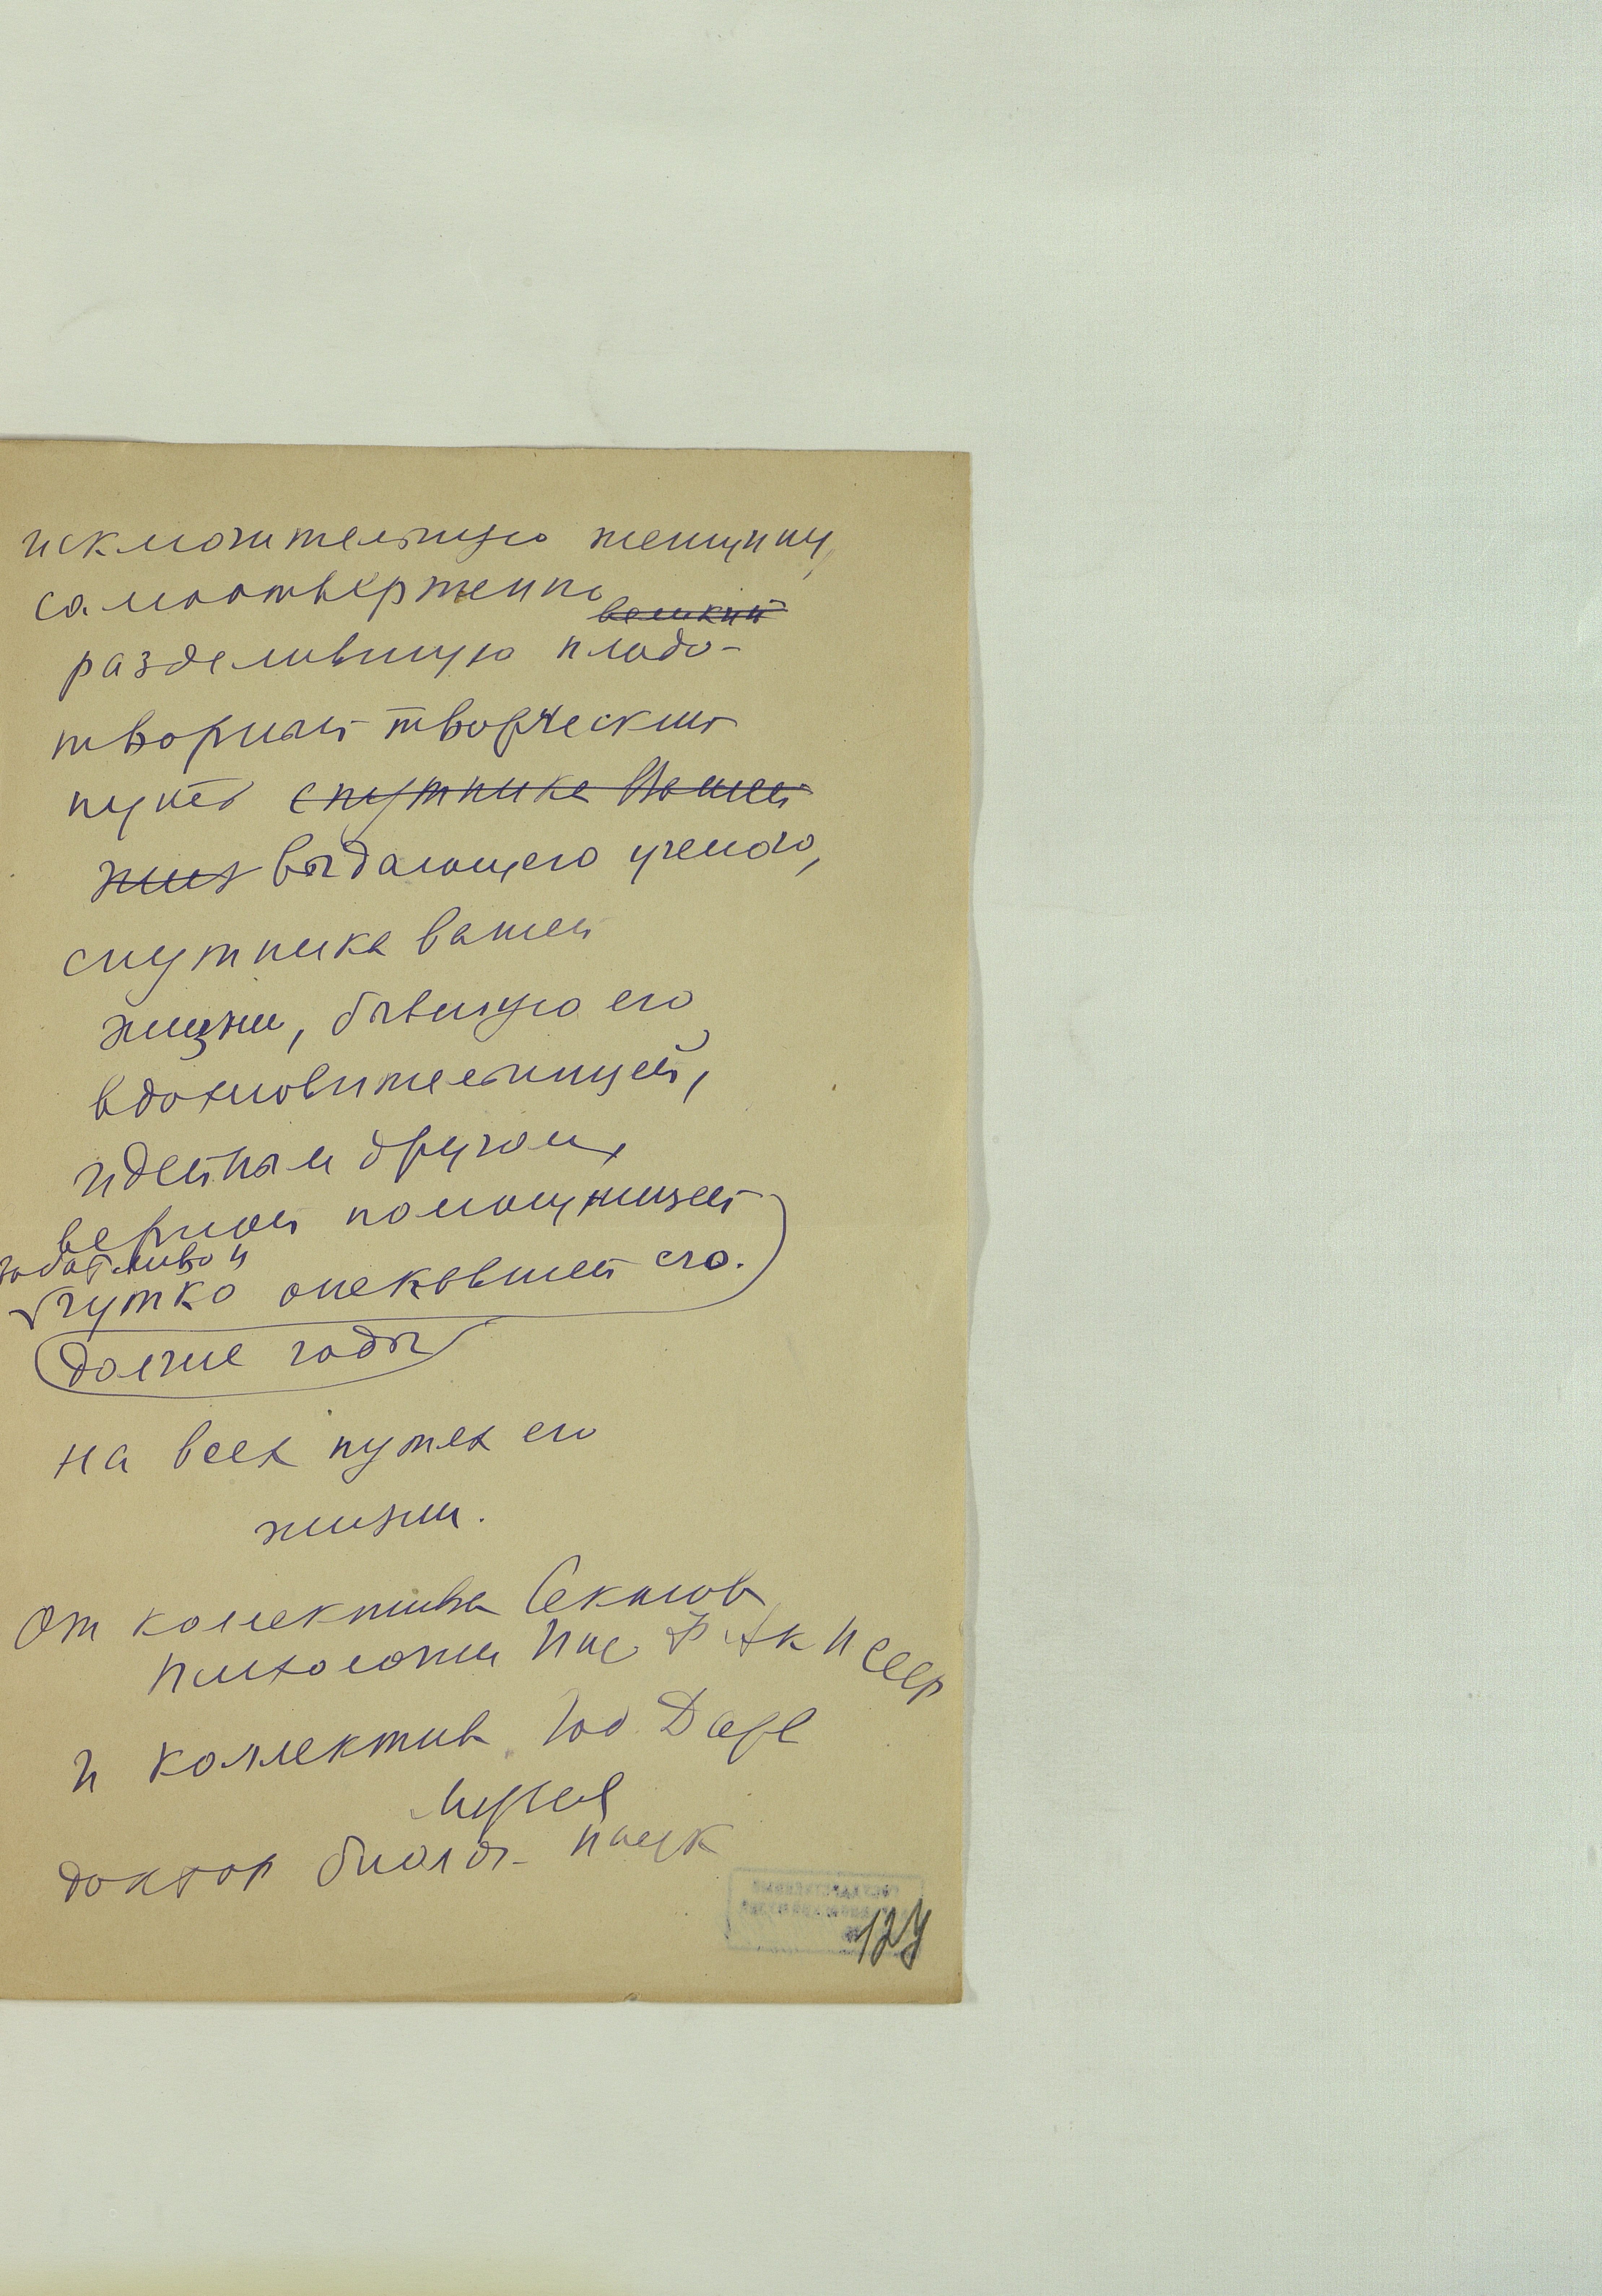 исключительную женщину,
самоотверженно
великий
разделившую плодо-
творный творческий
путь спутника Вашей
жиз выдающего ученого,
спутника вашей
жизни, бывшую его
вдохновительницей,
идейным другом,
верной помощницей
заботливо и
чутко опекавшей его.
долгие годы
на всех путях его
жизни.
От коллектива Секторов
психологии Инс Ф Ак Н СССР
и коллектив Гос Дарв
Музея
доктор биолог. наук
124